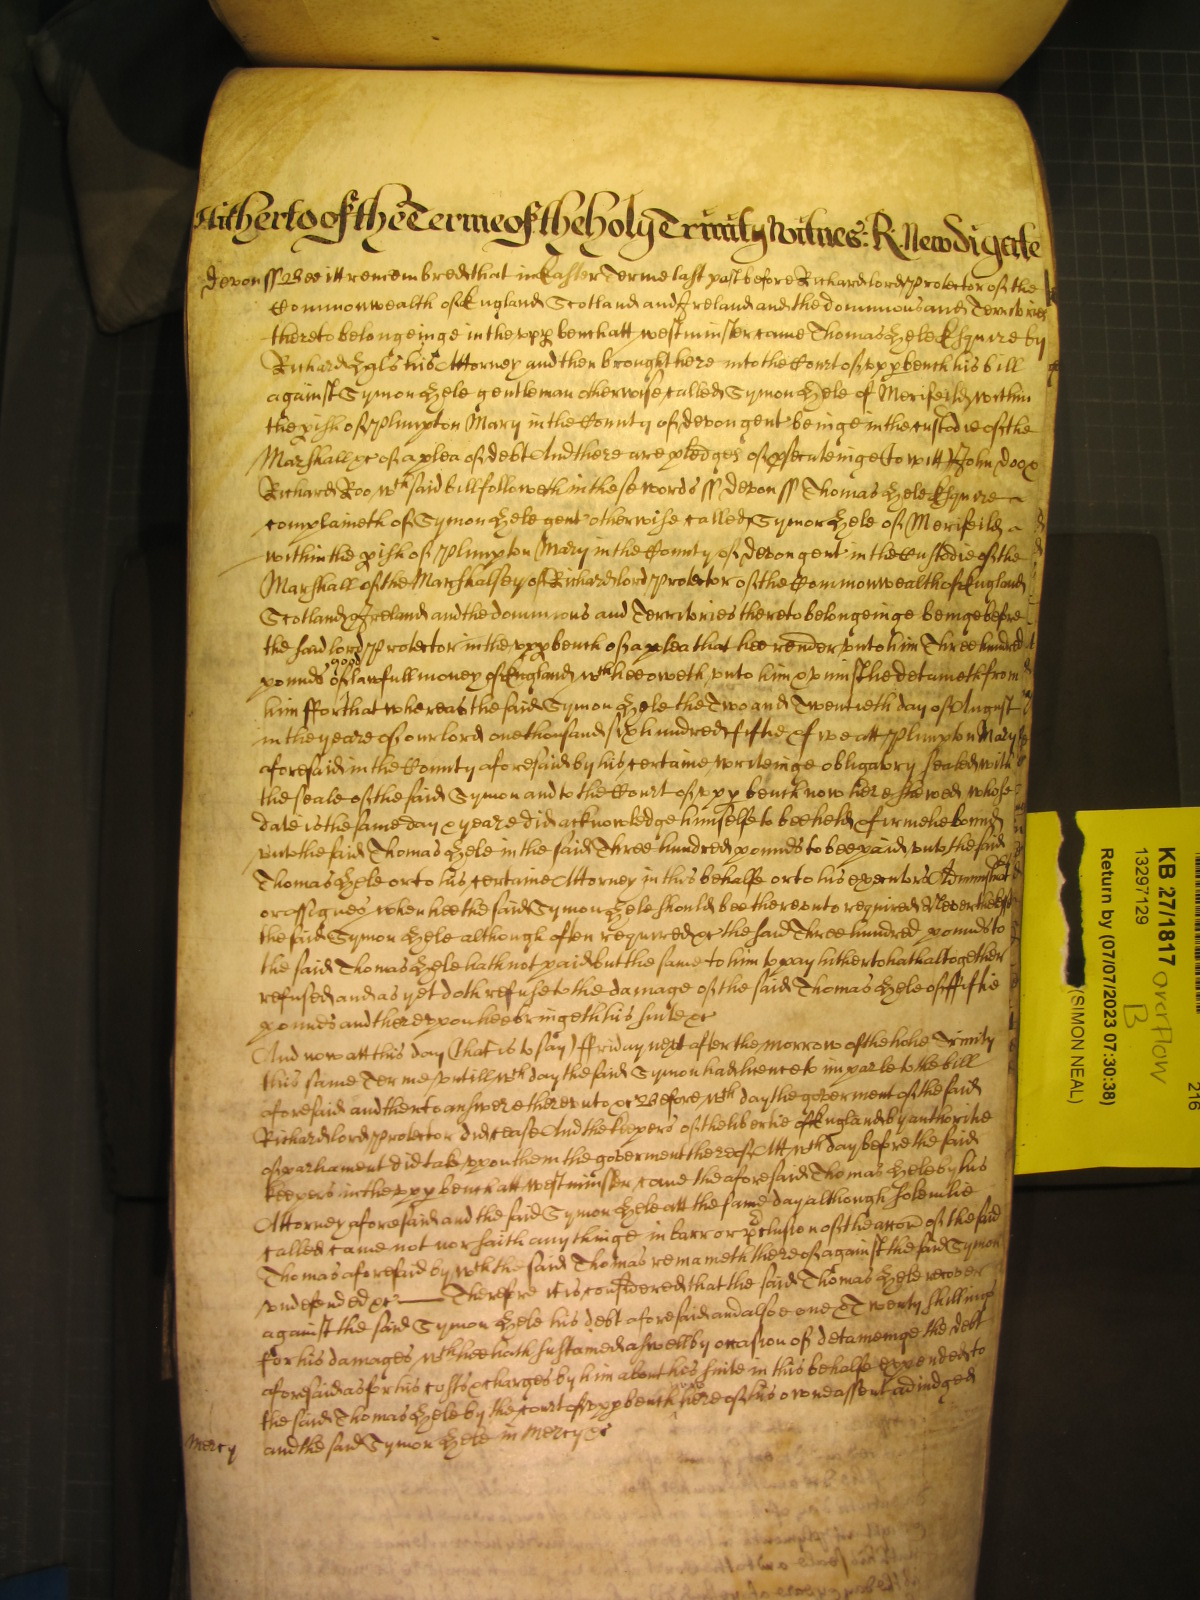 Hitherto of the Terme of the holy Trinity Witnes: R: Newdigate
Devon ss Bee itt remembred that in Easter Terme last past before Richard lord Protector of the
Commonwealth of England Scotland and Ireland and the dominions and Territories
thereto belongeinge in the upp bench att westminster came Thomas Hele Esquire by
Richard his Attorney and then brought here into the Court of upp bench his bill
against Symon Hele gentleman otherwise called Symon Hele of Merifeild within
the pish of Plimpton Mary in the County of devon gent beinge in the custodie of the
Marshall &c of a plea of debt And there are pledges of psecuteinge (to witt) John doo &
Richard Roo wch said bill followeth in these words ss devon ss Thomas Hele Esquire
complaineth of Symon Hele gent otherwise called Symon Hele of Merifeild
within the pish of Plimpton Mary in the County of devon gent in the Custodie of the
Marshall of the Marshalsey of Richard lord Protector of the Commonwealth of England
Scotland & Ireland and the dominions and Territories thereto belongeinge beinge before
the said lord Protector in the upp bench of a plea that hee render unto him Three hundred
pounds of good lawfull money of England wch hee oweth unto him & uniustlie detaineth from
him ffor that whereas the said Symon Hele the Two and Twentieth day of August
in the yeare of our lord one thousand six hundred fiftie & att Plimpton Mary
aforesaid in the County aforesaid by his certaine writeinge obligatory sealed with
the seale of the said Symon and to the Court of upp bench now here shewed whose
date is the same day & yeare did acknowledge himselfe to bee held & firmelie bound
unto the said Thomas Hele in the said Three hundred pounds to bee paid unto the said
Thomas Hele or to his certaine Attorney in this behalfe or to his executors
or assignes when hee the said Symon Hele should bee thereunto required Neverthelesse
the said Symon Hele although often required &c the said Three hundred pounds to
the said Thomas Hele hath not paid but the same to him to pay hitherto hath altogether
refused and as yet doth refuse to the damage of the said Thomas Hele of ffiftie
pounds and thereupon hee bringeth his suite &c
And now att this day (that is to say) ffriday next after the morrow of the holie Trinity
this same Terme untill wch day the said Symon had licence to imparle to the bill
aforesaid and then to answere thereunto &c Before wch day the goverment of the said
Richard lord Protector did cease And the keepers of the libertie of England by authoritie
of parliament did take upon them the goverment thereof Att wch day before the said
keepers in the upp bench att westminster came the aforesaid Thomas Hele by his
Attorney aforesaid and the said Symon Hele att the same day although solemlie
called came not nor saith any thinge in barr or pclusion of the accon of the said
Thomas aforesaid by wch the said Thomas remaineth thereof against the said Symon
undefended &c Therefore it is considered that the said Thomas Hele recover
against the said Symon Hele his debt aforesaid and alsoe one & Twenty shillings
for his damages wch hee hath sustained aswell by occasion of detaineinge the debt
aforesaid as for his costs & charges by him about his suite in this behalfe expended to
the said Thomas Hele by the court of upp bench now here of his owne assent adiudged
Mercy and the said Symon Hele in Mercy &c
KB 27/1817 overflow
13297129 B
Return by (07/07/2023 07:30:38)
(SIMON NEAL)
216